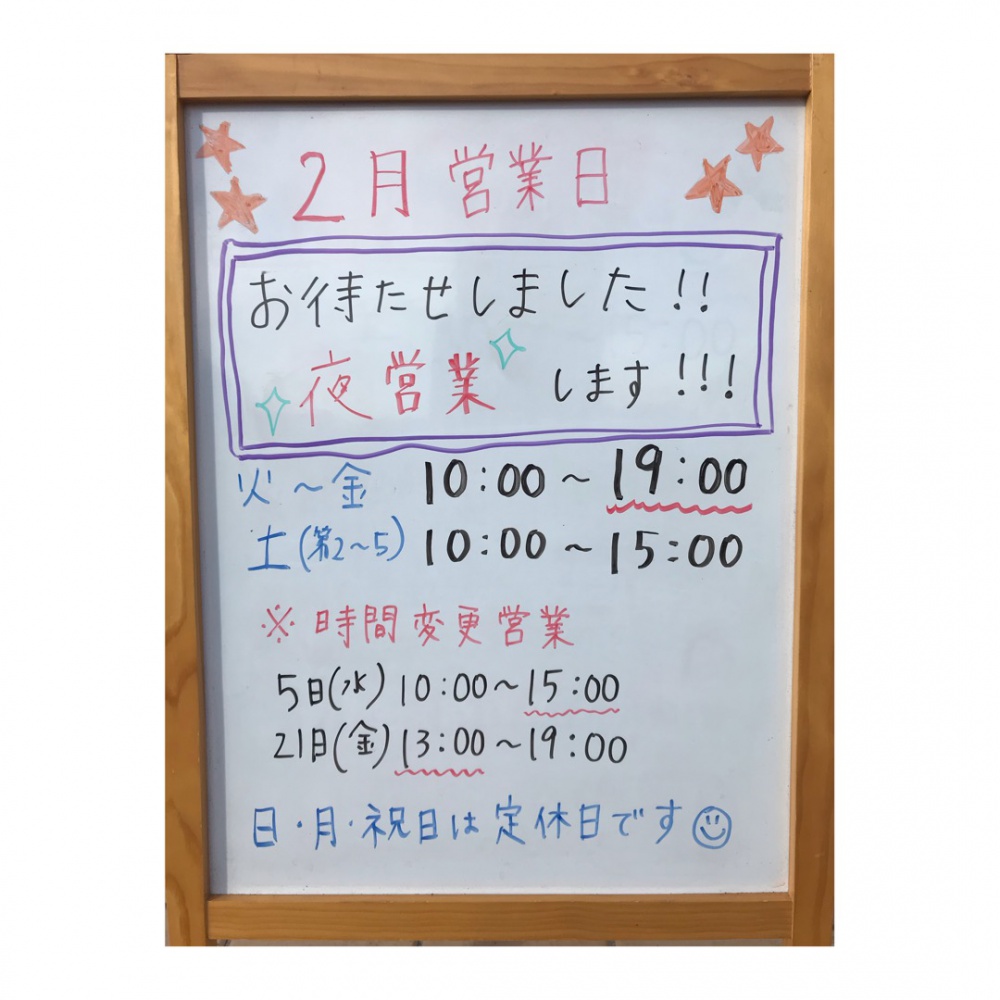 2月営業日
お待たせしました!!
夜営業します!!!
火～金 10:00～19:00
土(第2～5) 10:00～15:00
※時間変更営業
5日(水) 10:00～15:00
21日(金) 13:00～19:00
日・月・祝日は定休日です